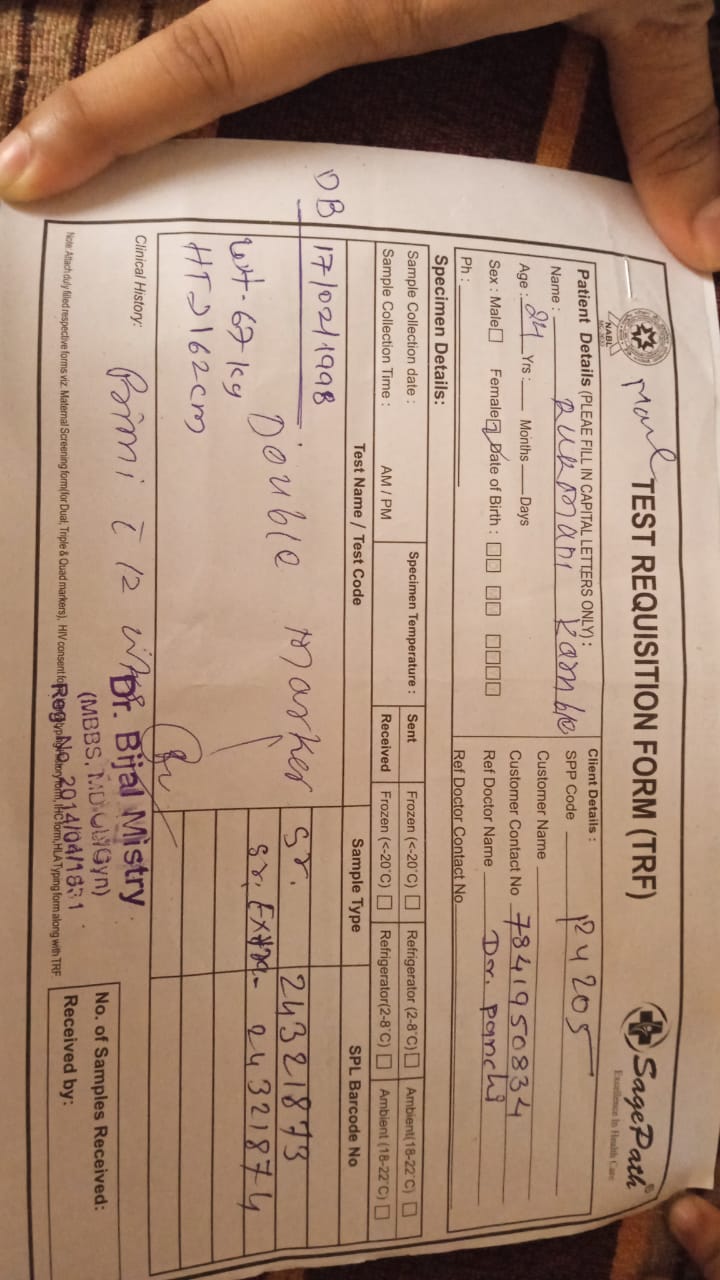 NABL
Mark
TEST REQUISITION FORM (TRF)
SagePath®
Excellence In Health Care
Patient Details (PLEAE FILL IN CAPITAL LETTERS ONLY) :
Name : Rukmani Kamble
Age : 24 Yrs : Months Days
Sex : Male Female Date of Birth :
Ph :
Client Details :
SPP Code P4205
Customer Name
Customer Contact No 7841950834
Ref Doctor Name Dr. Panchi
Ref Doctor Contact No
Specimen Details:
Sample Collection date : Specimen Temperature : Sent Frozen (<-20°C) Refrigerator (2-8°C) Ambient(18-22°C)
Sample Collection Time : AM / PM Received Frozen (<-20°C) Refrigerator(2-8°C) Ambient (18-22°C)
Test Name / Test Code Sample Type SPL Barcode No
DB 17/02/1998
Double Marker Sr. 24321873
Sr. Extra- 24321874
wt- 67 kg
HT 162cm
Clinical History: Primi c̄ 12 wks
Dr. Bijal Mistry
(MBBS, MD ObGyn)
Reg. No. 2014/04/1831
Note: Attach duly filled respective forms viz. Maternal Screening form(for Dual, Triple & Quad markers), HIV consent form, IHC form,HLA Typing form along with TRF
No. of Samples Received:
Received by: